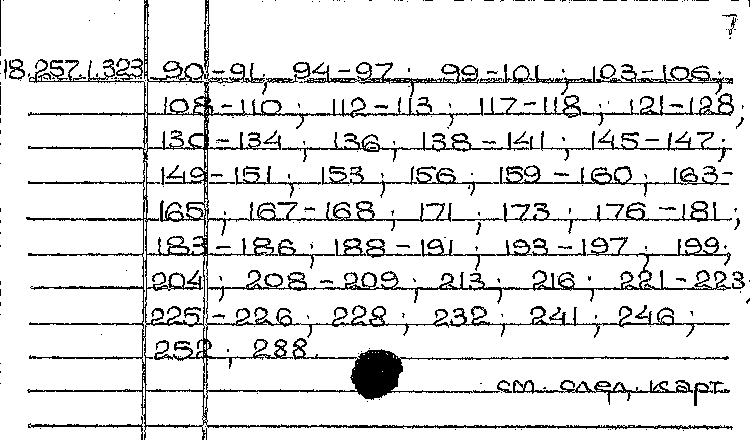 7
18.257.1.323 90-91; 94-97; 99-101; 103-106;
108-110; 112-113; 117-118; 121-128;
130-134; 136; 138-141; 145-147;
149-151; 153; 156; 159-160; 163-
165; 167-168; 171; 173; 176-181;
183-186; 188-191; 193-197; 199;
204; 208-209; 213; 216; 221-223
225-226; 228; 232; 241; 246;
252; 288.
см. след. карт